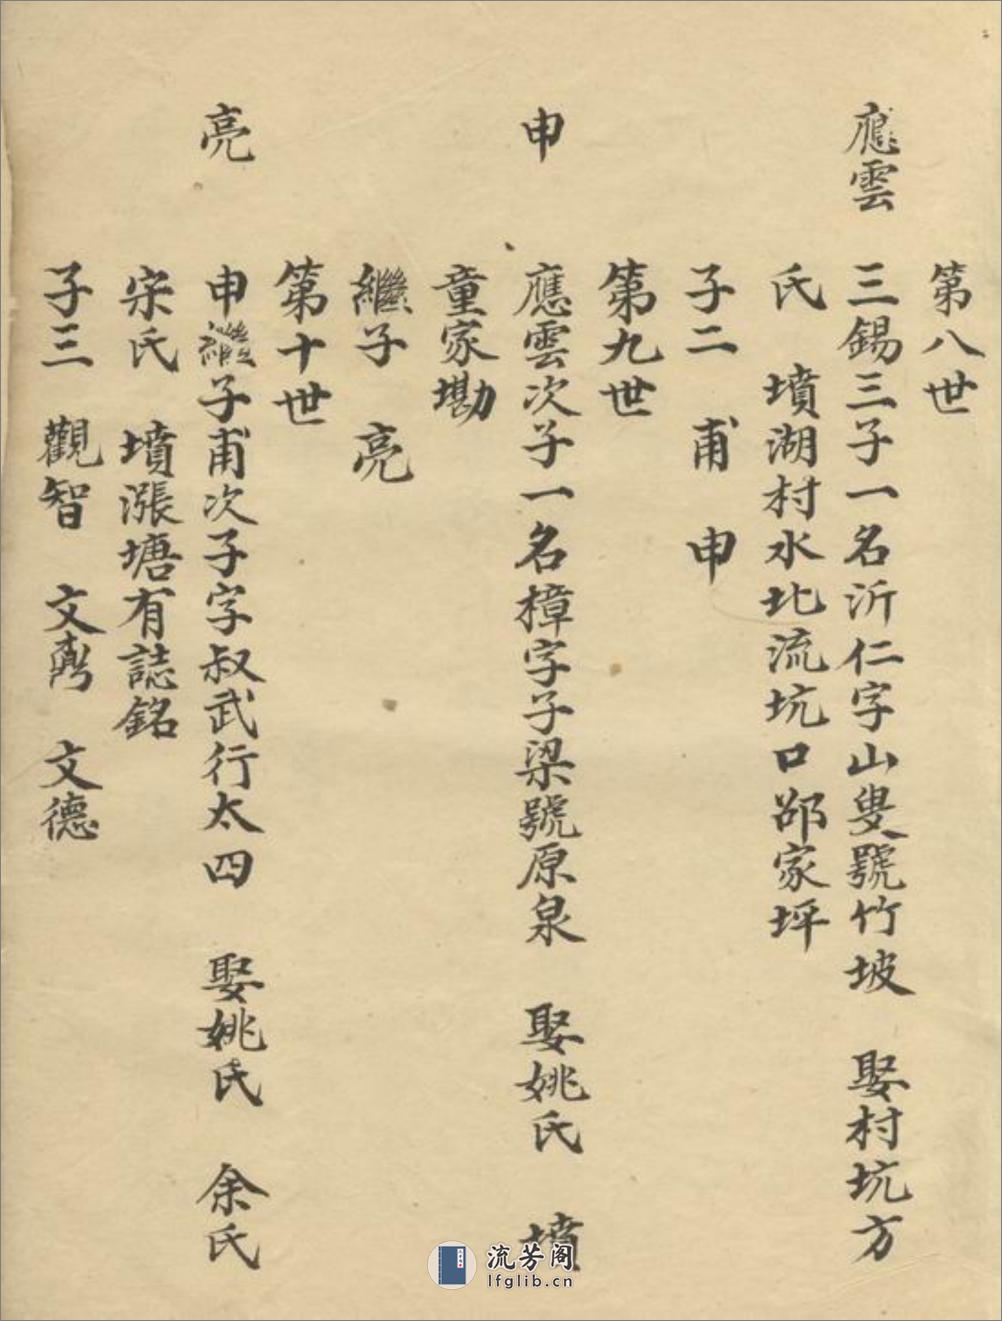 第八世
應雲　三錫三子一名沂仁字山叟號竹坡　娶村坑方
氏　墳湖村水北流坑口邵家坪
子二　甫　申
第九世
申　應雲次子一名樟字子梁號原泉　娶姚氏　墳
童家墈
繼子　亮
第十世
亮　申繼子甫次子字叔武行太四　娶姚氏　余氏
宋氏　墳漲塘有誌銘
子三　觀智　文　文德
流芳阁
lfglib.cn